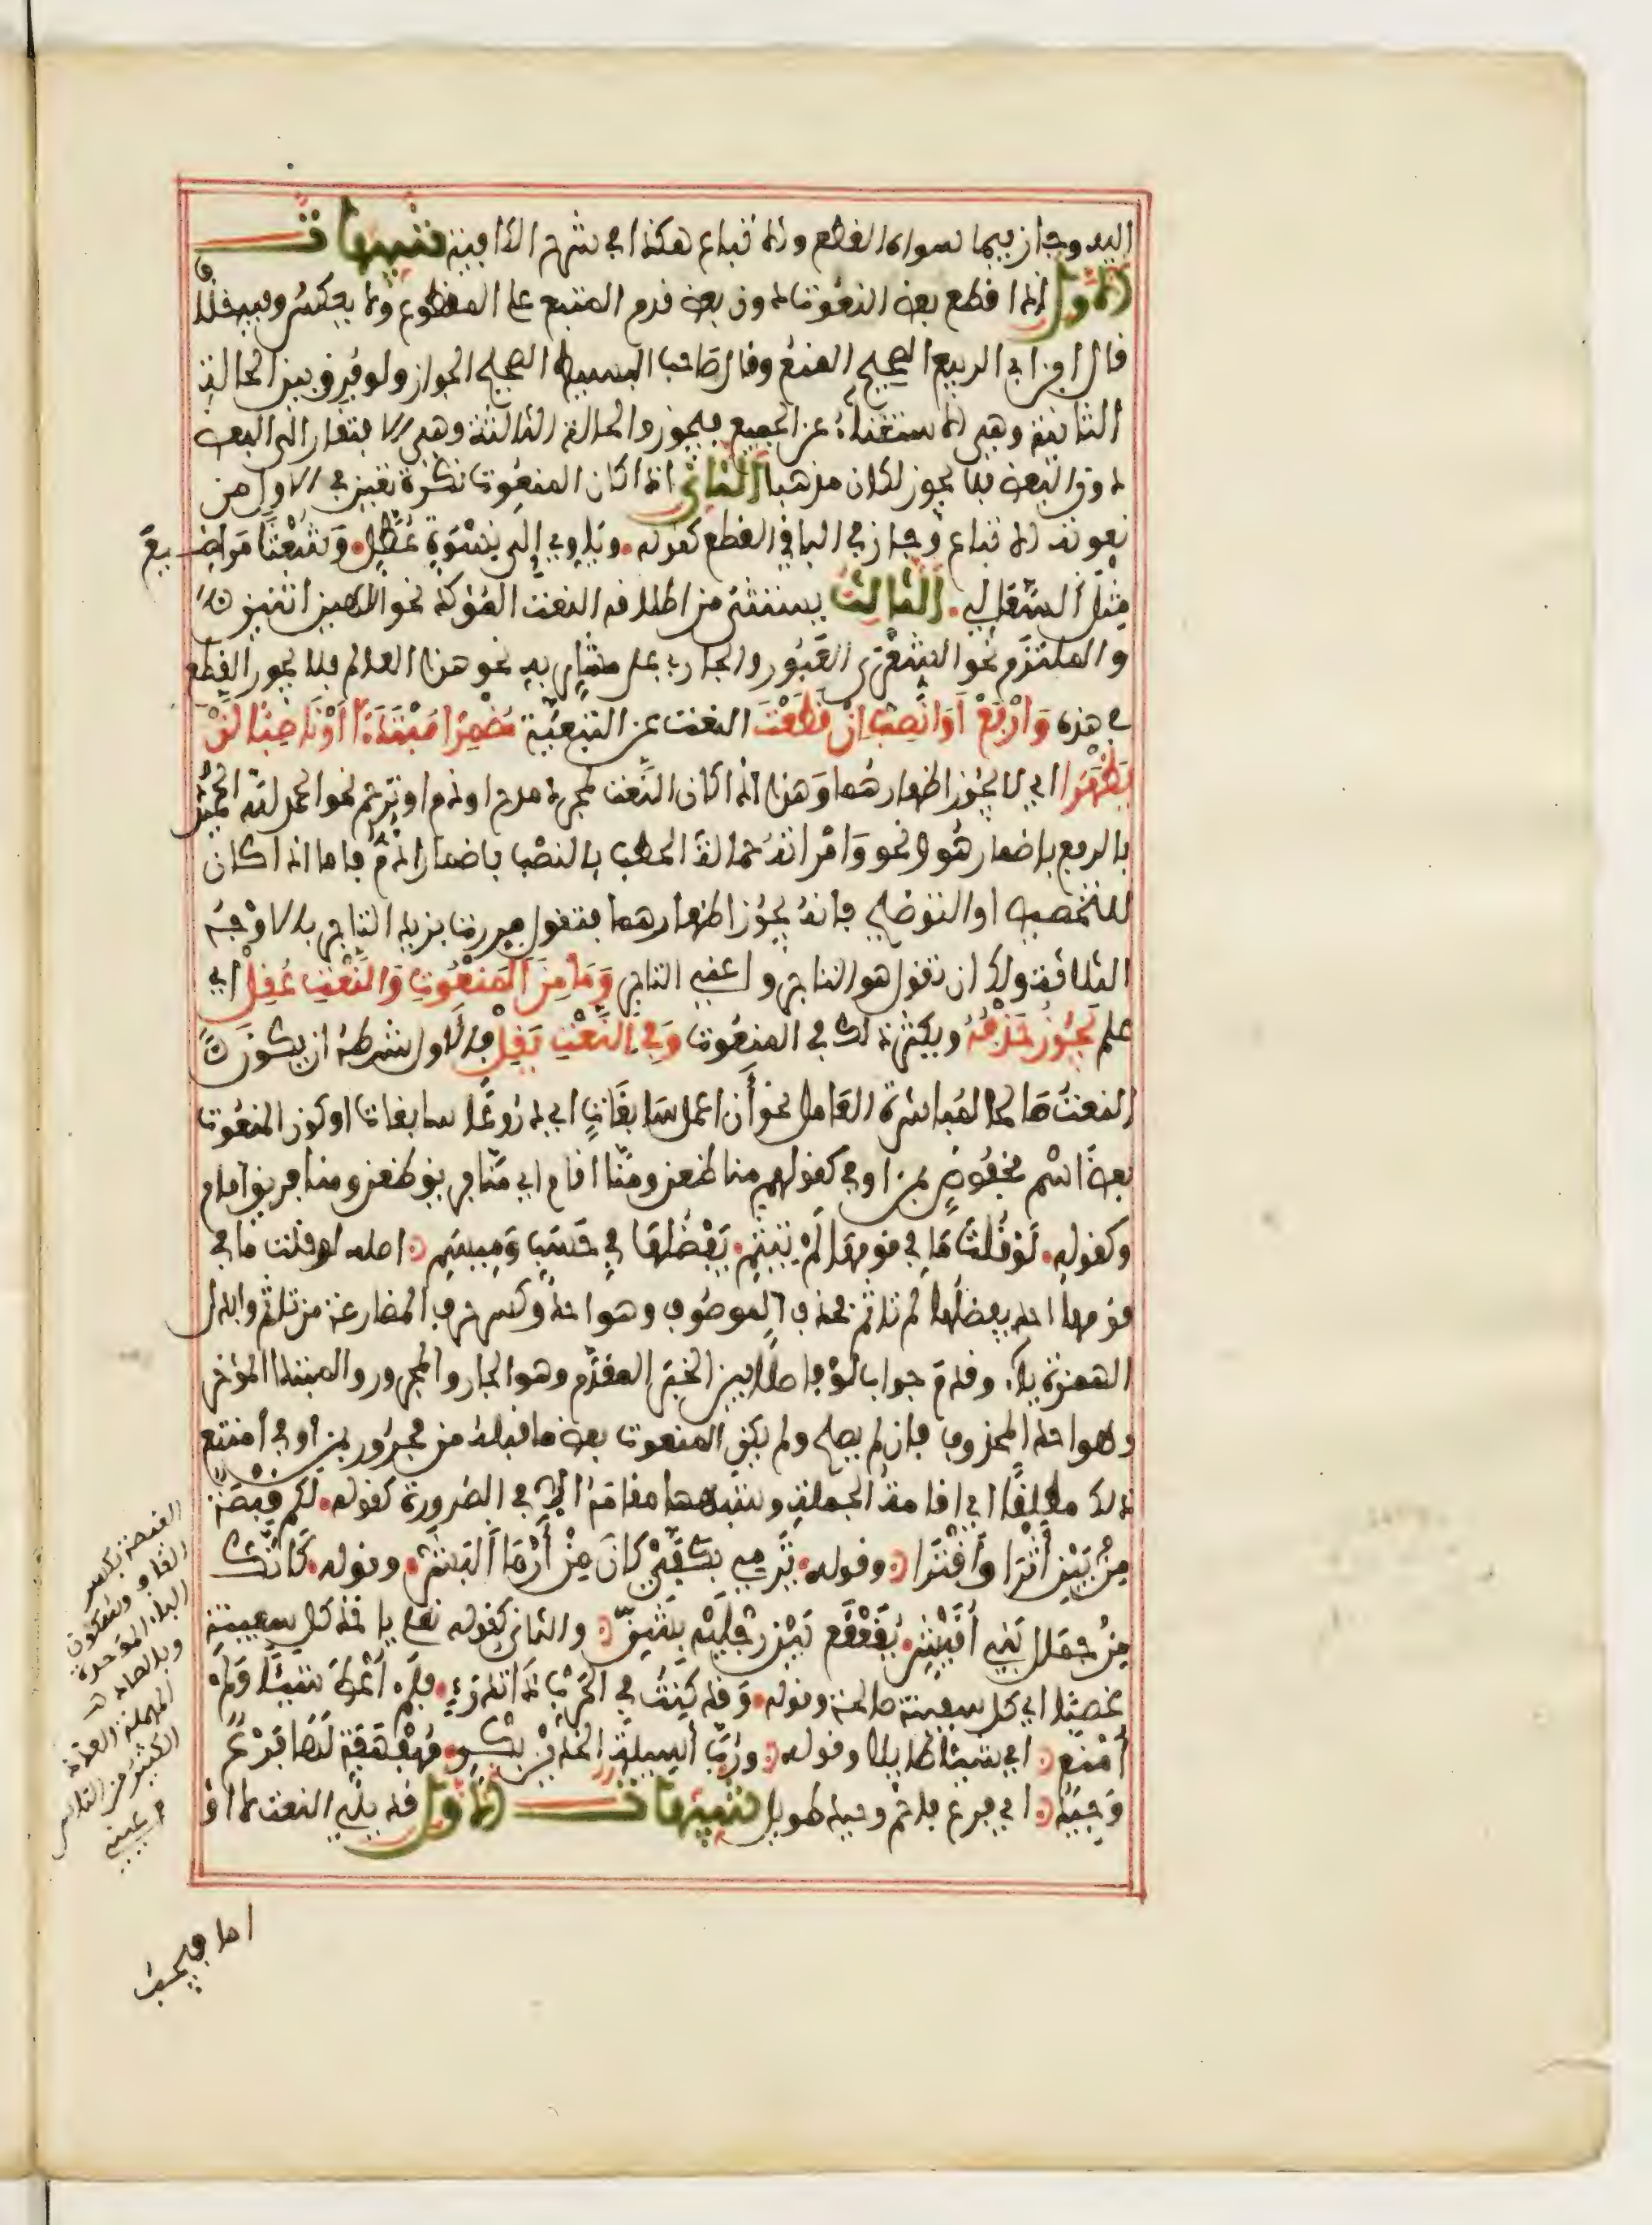 اليه وجاز فيما سواه القطع والاتباع هكذا في شرح الكافية تنبيهات
الأول اذا قطع بعض النعوت دون بعض قدم المتبع على المقطوع ولا يعكس وفيه خلاف
قال ابن ابي الربيع الصحيح المنع وقال صاحب البسيط الصحيح الجواز ولو فرق بين الحالة
الثانية وهي الاستغناء عن الجميع فيجوز والحالة الثالثة وهي الافتقار الى البعض
دون البعض فلا يجوز لكان مذهبا الثاني اذا كان المنعوت نكرة تعين في الاول من
نعوته الاتباع وجاز في الباقي القطع كقوله. ويأوي إلى نسوة عطل. وشعثا مراضيع
مثل السعالي. الثالث يستثنى من اطلاقه النعت المؤكد نحو الاهين اثنين
والملتزم نحو الشعرى العبور والجاري على مشار به نحو هذا العالم فلا يجوز القطع
في هذه وارفع أو انصب ان قطعت النعت عن التبعية مضمرا مبتدأ أو ناصبا لن
يظهرا اي لا يجوز اظهارهما وهذا اذا كان النعت لمجرد مدح او ذم او ترحم نحو الحمد لله الحميد
بالرفع باضمار هو ونحو وامرأته حمالة الحطب بالنصب باضمار اذم فاما اذا كان
للتخصيص او التوضيح فانه يجوز اظهارهما فتقول مررت بزيد التاجر بالاوجه
الثلاثة ولك ان تقول هو التاجر واعني التاجر وما من المنعوت والنعت عقل اي
علم يجوز حذفه ويكثر ذلك في المنعوت وفي النعت يقل فالاول شرطه ان يكون
النعت صالحا لمباشرة العامل نحو أن اعمل سابغات اي دروعا سابغات او كون المنعوت
بعض اسم مخفوض بمن او في كقولهم منا ظعن ومنا اقام اي منا فريق ظعن ومنا فريق اقام
وكقوله. لو قلت ما في قومها لم تيثم. يفضلها في حسب وميسم. اصله لو قلت ما في
قومها احد يفضلها لم تاثم فحذف الموصوف وهو احد وكسر حرف المضارعة من تاثم وابدل
الهمزة ياء وقدم جواب لو فاصلا بين الخبر المقدم وهو الجار والمجرور والمبتدا المؤخر
وهو احد المحذوف فان لم يصلح ولم يكن المنعوت بعض ما قبله من مجرور بمن او في امتنع
ذلك مطلقا اي اقامة الجملة وشبهها مقامه الا في الضرورة كقوله. لكم قبصة
من بين أثرا وأقترا. وقوله. ترمي بكفي كان من أرمى البشر. وقوله. كانك
من جمال بني أقيش. يقعقع بين رجليه بشن. والثاني كقوله تعالى ياخذ كل سفينة
غصبا اي كل سفينة صالحة وقوله. وقد كنت في الحرب ذا تدرء. فلم أعط شيئا ولم
أمنع. اي شيئا طايلا وقوله. ورب أسيلة الخدين بكر. مهفهفة لها فرع
وجيد. اي فرع فاحم وجيد طويل تنبيهات الأول قد يلي النعت لا او
القبصة بكسر
القاف وسكون
الباء الموحدة
وبالصاد
المهملة العدد
الكثير من الناس
اما فيجب